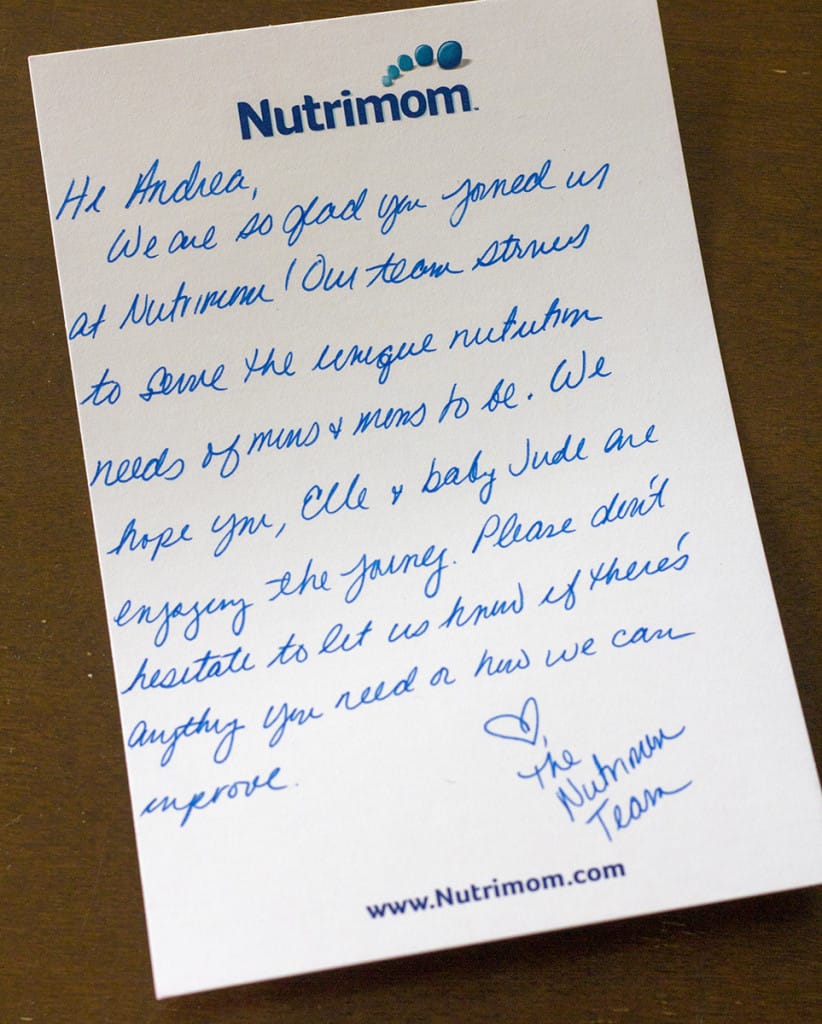 Nutrimom™
Hi Andrea,
We are so glad you joined us
at Nutrimom! Our team strives
to serve the unique nutrition
needs of moms & moms to be. We
hope you, Elle & baby Jude are
enjoying the journey. Please don't
hesitate to let us know if there's
anything you need or how we can
improve.
♡,
The
Nutrimom
Team
www.Nutrimom.com